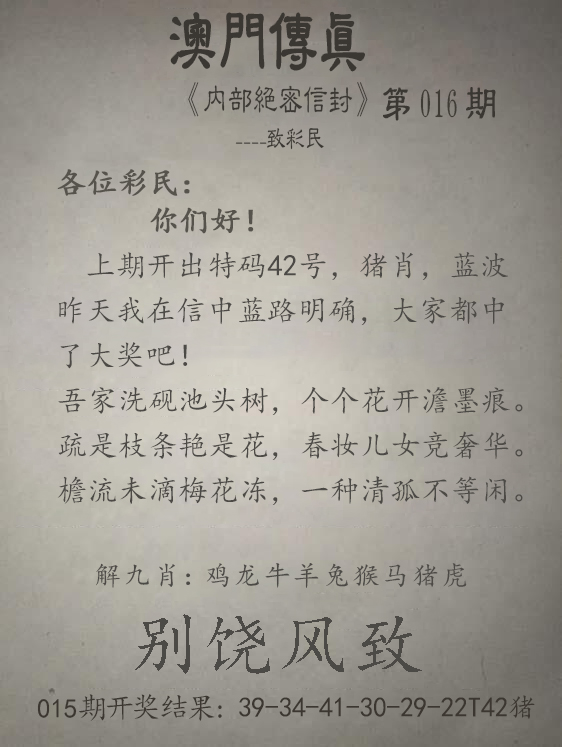 澳門傳真
《内部絕密信封》第016期
----致彩民
各位彩民：
你们好！
上期开出特码42号，猪肖，蓝波
昨天我在信中蓝路明确，大家都中
了大奖吧！
吾家洗砚池头树，个个花开澹墨痕。
疏是枝条艳是花，春妆儿女竞奢华。
檐流未滴梅花冻，一种清孤不等闲。
解九肖：鸡龙牛羊兔猴马猪虎
别饶风致
015期开奖结果：39-34-41-30-29-22T42猪